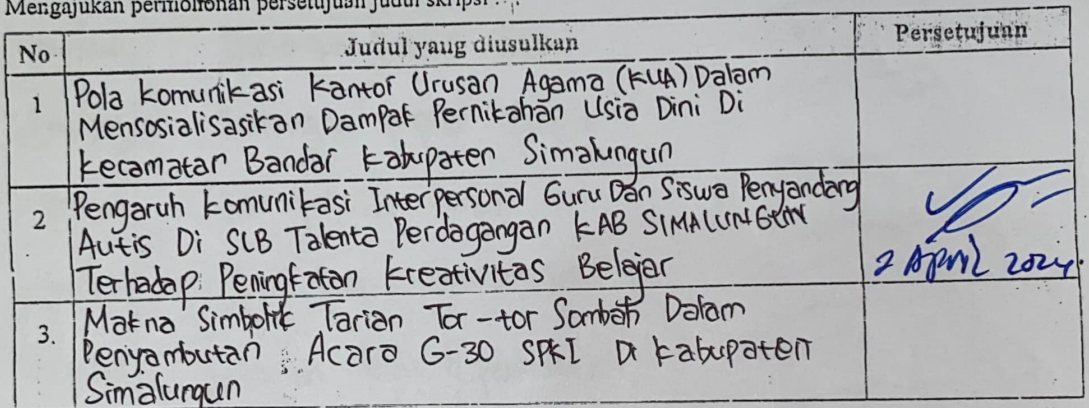 Mengajukan permohonan persetujuan judul skripsi :
No Judul yang diusulkan Persetujuan
1 Pola komunikasi Kantor Urusan Agama (KUA) Dalam
Mensosialisasikan Dampak Pernikahan Usia Dini Di
Kecamatan Bandar Kabupaten Simalungun
2 Pengaruh komunikasi Interpersonal Guru Dan Siswa Penyandang
Autis Di SLB Talenta Perdagangan KAB SIMALUNGUN
Terhadap Peningkatan Kreativitas Belajar
2 April 2024.
3. Makna Simbolik Tarian Tor-tor Sombah Dalam
Penyambutan Acara G-30 SPKI Di Kabupaten
Simalungun